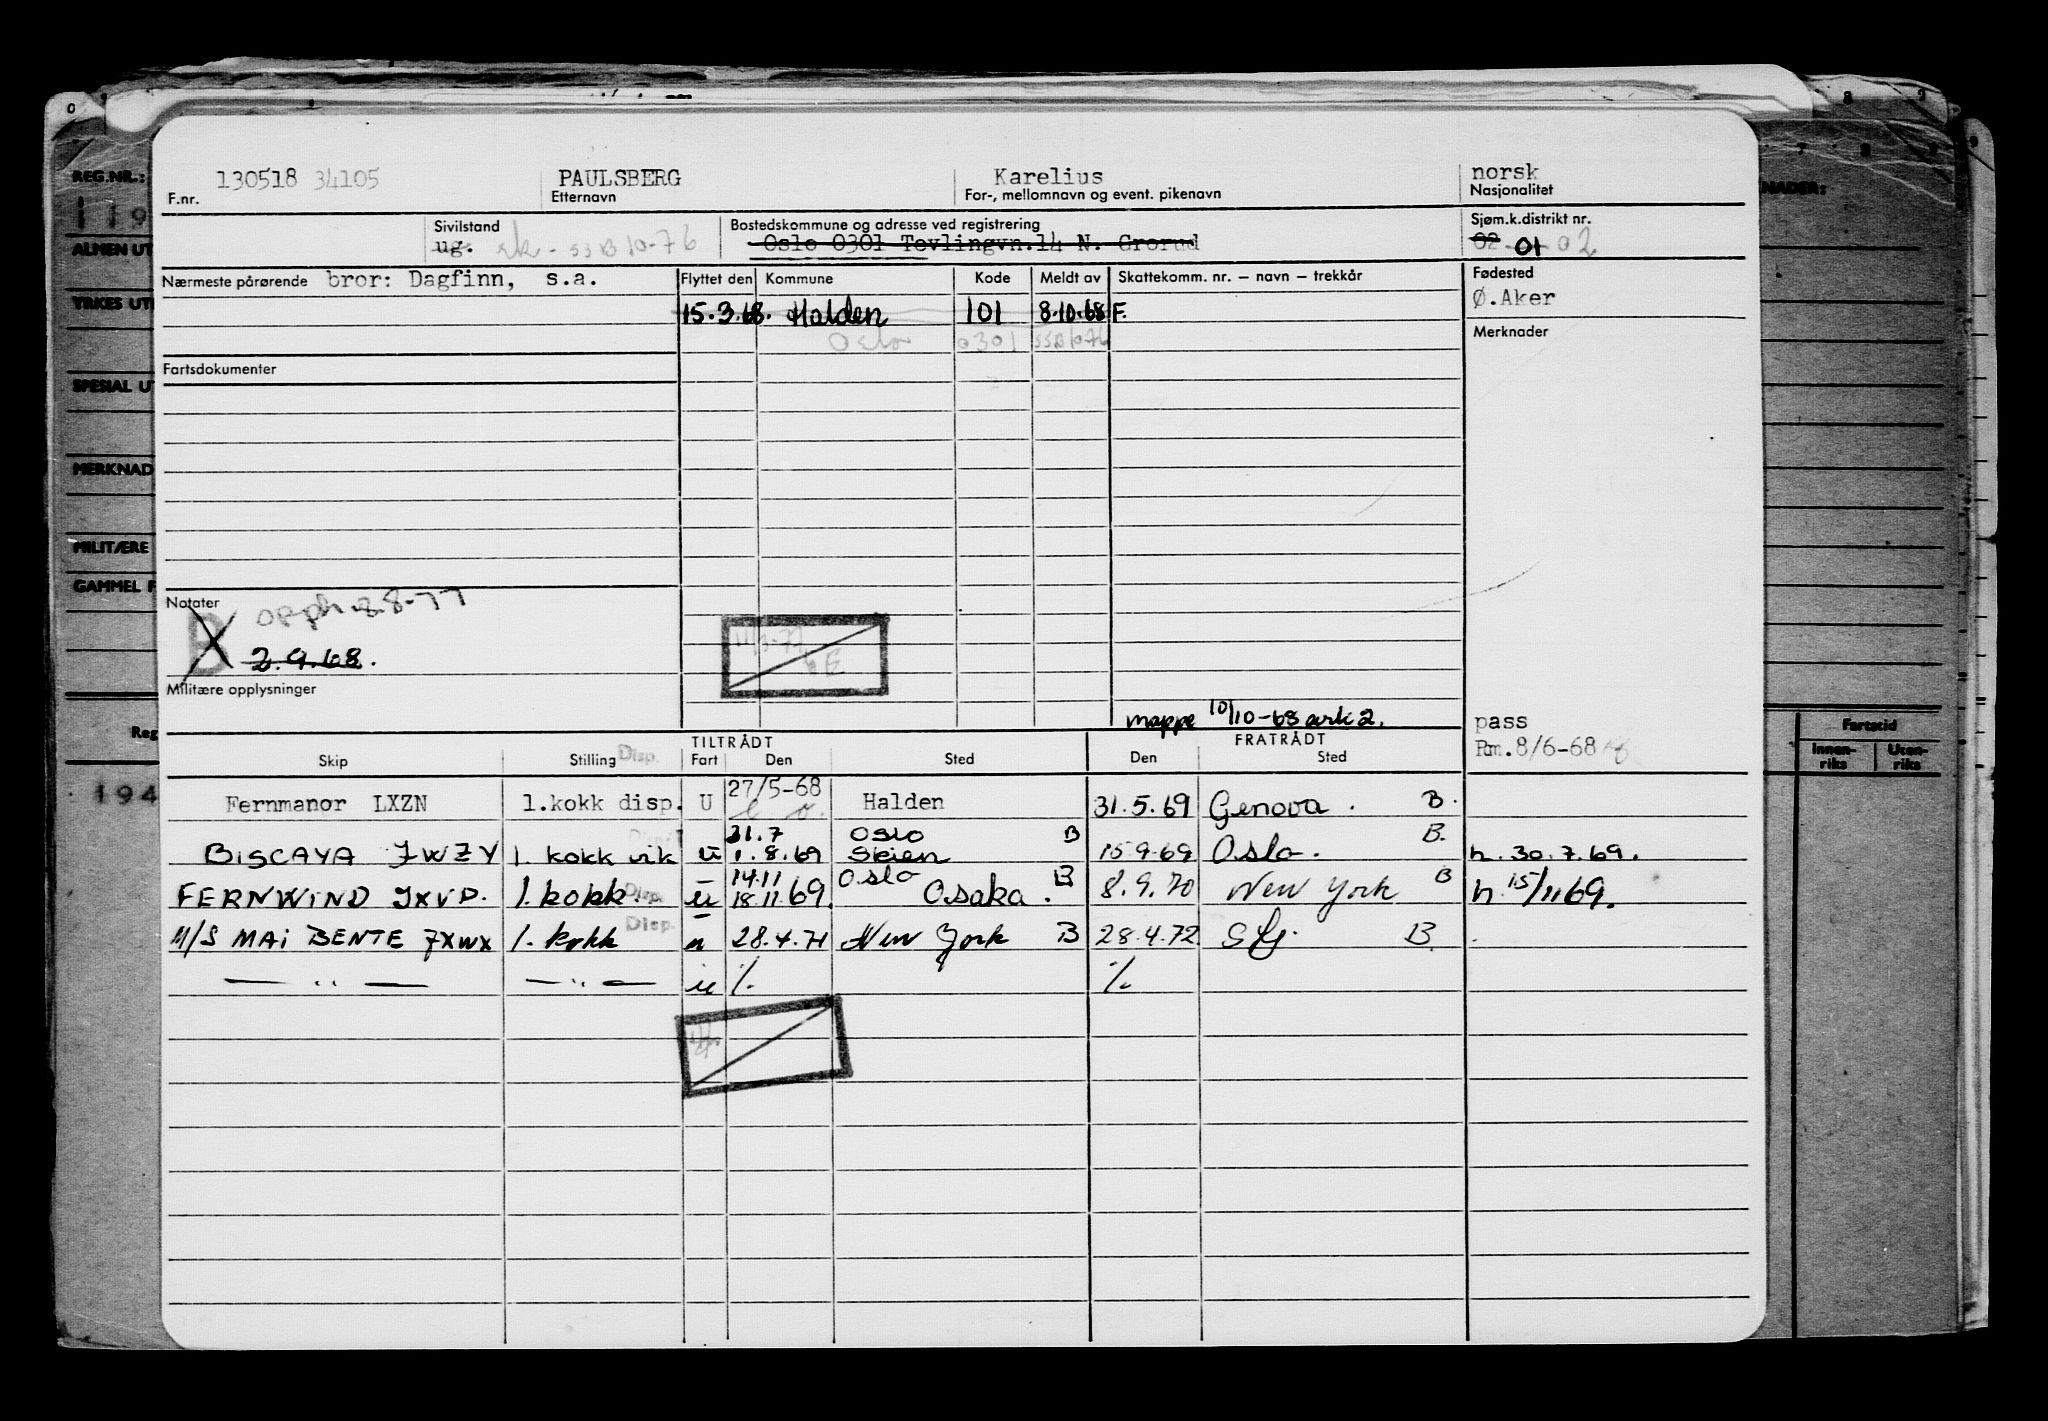 REG.NR.:
119
ALMEN UT
YRKES UT
SPESIAL UT
MERKNAD
MILITÆRE
GAMMEL F
Reg
194
NADER:
Fartstid
Innen-riks Uten-riks
130518 34105 PAULSBERG Karelius norsk
F.nr. Etternavn For-, mellomnavn og event. pikenavn Nasjonalitet
Sivilstand Bostedskommune og adresse ved registrering Sjøm.k.distrikt nr.
ug. - SSB 10-76 Oslo 0301 Tevlingvn.14 N. Grorud 02 01 02
Nærmeste pårørende bror: Dagfinn, s.a. Flyttet den Kommune Kode Meldt av Skattekomm. nr. – navn – trekkår Fødested
Ø.Aker
15.3.68. Halden 101 8.10.68 F.
Merknader
Oslo 0301 SSB 10-76
Fartsdokumenter
Notater
B opph. 8.8-77
2.9.68.
Militære opplysninger
mappe 10/10-68 ark 2.
pass
Rm.8/6-68
TILTRÅDT FRATRÅDT
Skip Stilling Disp. Fart Den Sted Den Sted
Fernmanor LXZN 1.kokk disp. U 27/5-68 Halden 31.5.69 Genova. B.
31.7 Oslo B
BISCAYA JWZY 1. kokk vik u 1.8.69 Skien 15.9.69 Oslo. B. h. 30.7.69.
14.11 Oslo B
FERNWIND JXVP. 1. kokk. Disp. u 18.11.69. Osaka. 8.9.70 New York B h. 15/11 69.
M/S MAI BENTE JXWX 1. kokk Disp. n 28.4.71 New York B 28.4.72 Sfj. B.
— " — — " — u %. %.